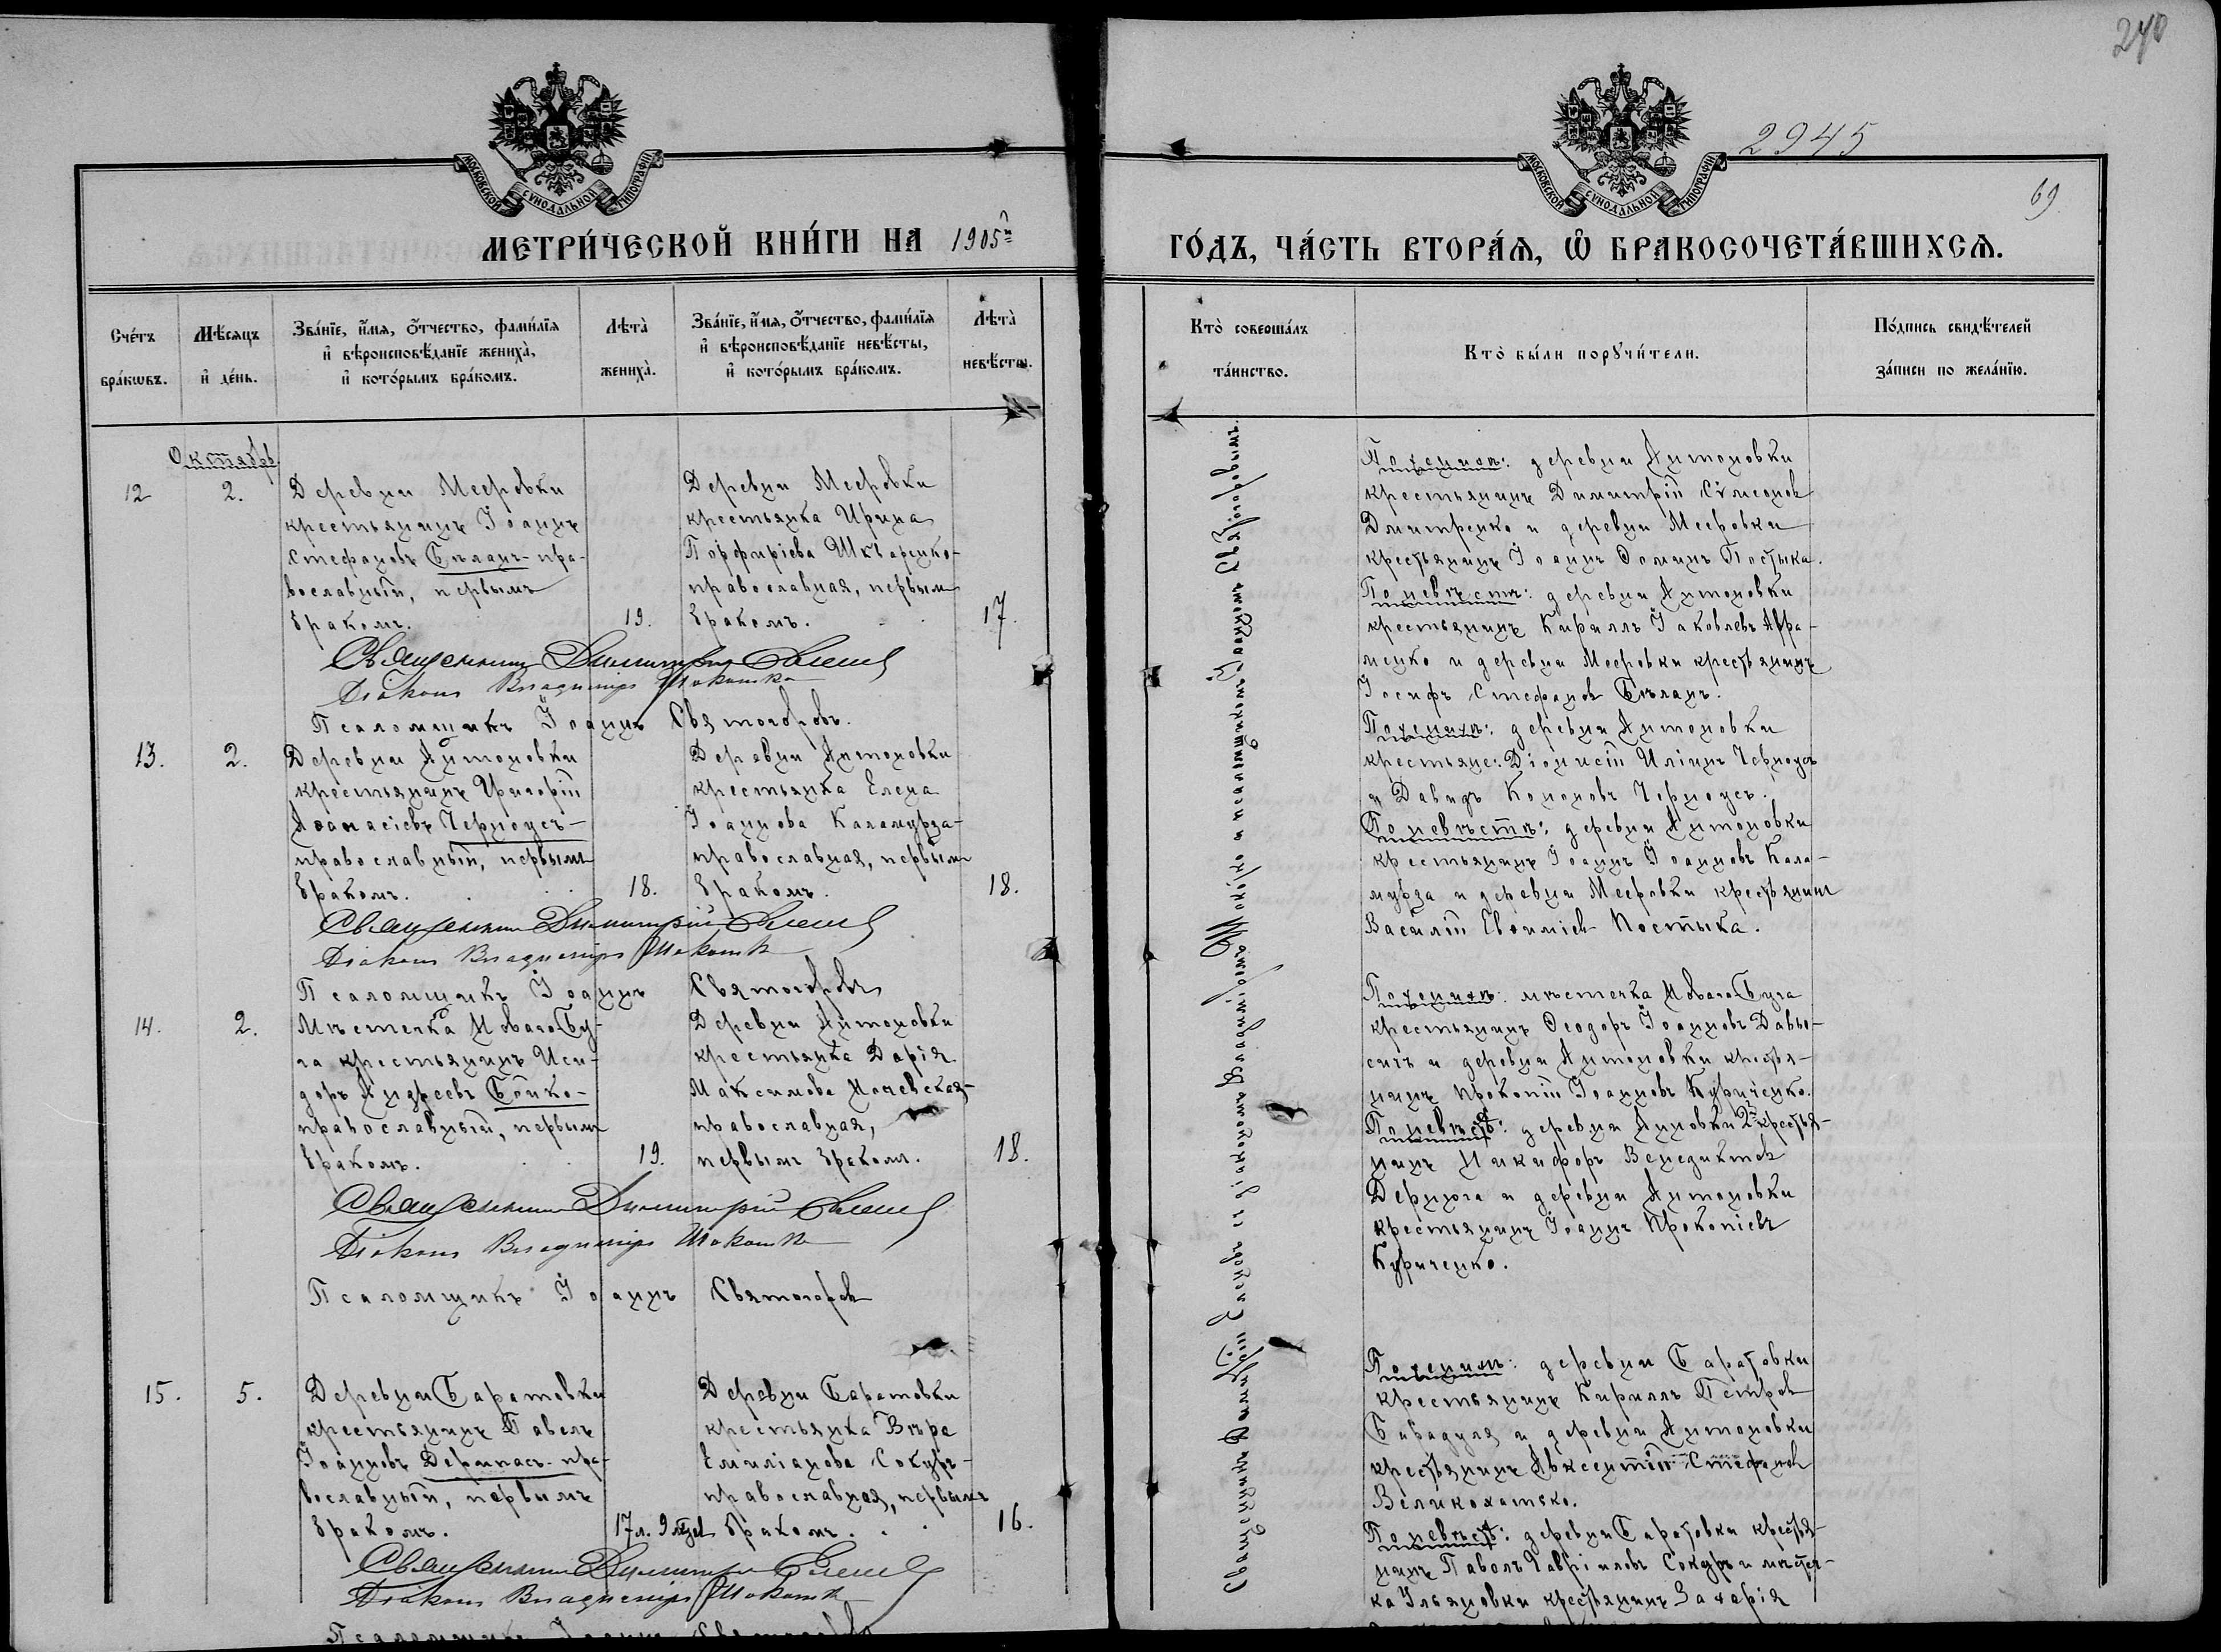 240
2945
69
МОСКОВСКОЙ СУНОДАЛЬНОЙ ТИПОГРАФІИ
МОСКОВСКОЙ СУНОДАЛЬНОЙ ТИПОГРАФІИ
МЕТРИ́ЧЕСКОЙ КНИ́ГИ НА 1905й
ГО́ДЪ, ЧА́СТЬ ВТОРА́Ѧ, Ѽ БРАКОСОЧЕТА́ВШИХСѦ.
Счéтъ бра́кѡвъ.
Мѣ́сѧцъ и҆ де́нь.
Зва́нїе, и҆́мѧ, ѻ҆́тчество, фами́лїѧ и҆ вѣроисповѣ́данїе жениха̀, и҆ кото́рымъ бра́комъ.
Лѣта̀ жениха̀.
Зва́нїе, и҆́мѧ, ѻ҆́тчество, фами́лїѧ и҆ вѣроисповѣ́данїе невѣ́сты, и҆ кото́рымъ бра́комъ.
Лѣта̀ невѣ́сты.
Кто̀ соверша́лъ та́инство.
Кто̀ бы́ли порꙋчи́тели.
По́дпись свидѣ́телей за́писи по жела́нїю.
Октябрь
12
2.
Деревни Мееровки
крестьянинъ Іоаннъ
Стефановъ Бѣланъ - пра-
вославный, первымъ
бракомъ.
19.
Деревни Мееровки
крестьянка Ирина
Порфиріева Шкваренко-
православная, первым
бракомъ.
17.
Священникъ Димитрій
Діаконъ Владиміръ
Псаломщикъ Іоаннъ Святогоровъ.
13.
2.
Деревни Антоновки
крестьянинъ Григорій
Аѳанасіевъ Черноусъ -
православный, первымъ
бракомъ.
18.
Деревни Антоновки
крестьянка Елена
Іоаннова Каламурза-
православная, первым
бракомъ.
18.
Священникъ Димитрій
Діаконъ Владиміръ
Псаломщикъ Іоаннъ Святогоровъ
14.
2.
Мѣстечка Новаго Бу-
га крестьянинъ Иси-
доръ Андреевъ Бойко -
православный, первымъ
бракомъ.
19.
Деревни Антоновки
крестьянка Дарія
Максимова Мочевская-
православная,
первымъ бракомъ.
18.
Священникъ Димитрій
Діаконъ Владиміръ
Псаломщикъ Іоаннъ Святогоровъ
15.
5.
Деревни Баратовки
крестьянинъ Павелъ
Іоанновъ Дерипасъ - пра-
вославный, первымъ
бракомъ.
17 л. 9 мѣс.
Деревни Баратовки
крестьянка Вѣра
Емиліанова Сокуръ -
православная, первымъ
бракомъ.
16.
Священникъ Димитрій
Діаконъ Владиміръ
Псаломщикъ Іоаннъ
Священникъ Димитрій съ діакономъ Владиміромъ и псаломщикомъ Іоанномъ Святогоровымъ.
По женихѣ: деревни Антоновки
крестьянинъ Димитрій Сѵмеонов
Дмитренко и деревни Мееровки
крестьянинъ Іоаннъ Ѳоминъ Постыка.
По невѣстѣ: деревни Антоновки
крестьянинъ Кириллъ Іаковлевъ Авра-
менко и деревни Мееровки крестьянинъ
Іосифъ Стефанов Бѣланъ.
По женихѣ: деревни Антоновки
крестьяне: Діонисій Иліинъ Черноусъ
и Давидъ Кононовъ Черноусъ.
По невѣстѣ: деревни Антоновки
крестьянинъ Іоаннъ Іоанновъ Кала-
мурза и деревни Мееровки крестьянинъ
Василій Евѳиміев Постыка.
По женихѣ: мѣстечка Новаго Буга
крестьянинъ Ѳеодоръ Іоанновъ Давы-
сичъ и деревни Антоновки крестья-
нинъ Прокопій Іоанновъ Куриченко.
По невѣстѣ: деревни Анновки 2й крестья-
нинъ Никифоръ Венедиктов
Дернюга и деревни Антоновки
крестьянинъ Іоаннъ Прокопіевъ
Куриченко.
По женихѣ: деревни Баратовки
крестьянинъ Кириллъ Петров
Бабадуля и деревни Антоновки
крестьянинъ Авксентій Стефанов
Великохатько.
По невѣстѣ: деревни Баратовки крестья-
нинъ Павелъ Гавріиловъ Сокуръ и мѣстеч-
ка Ульяновки крестьянинъ Захарія